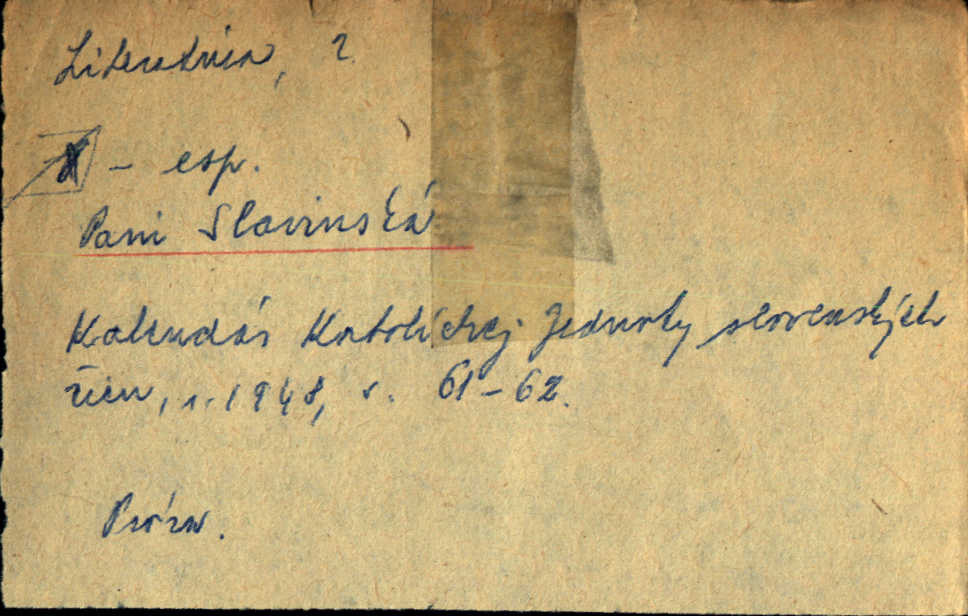 Literatúra, 2
X - esp.
Pani Slavinská
Kalendár Katolíckej Jednoty slovenských
žien, r. 1948, s. 61-62.
Próza.